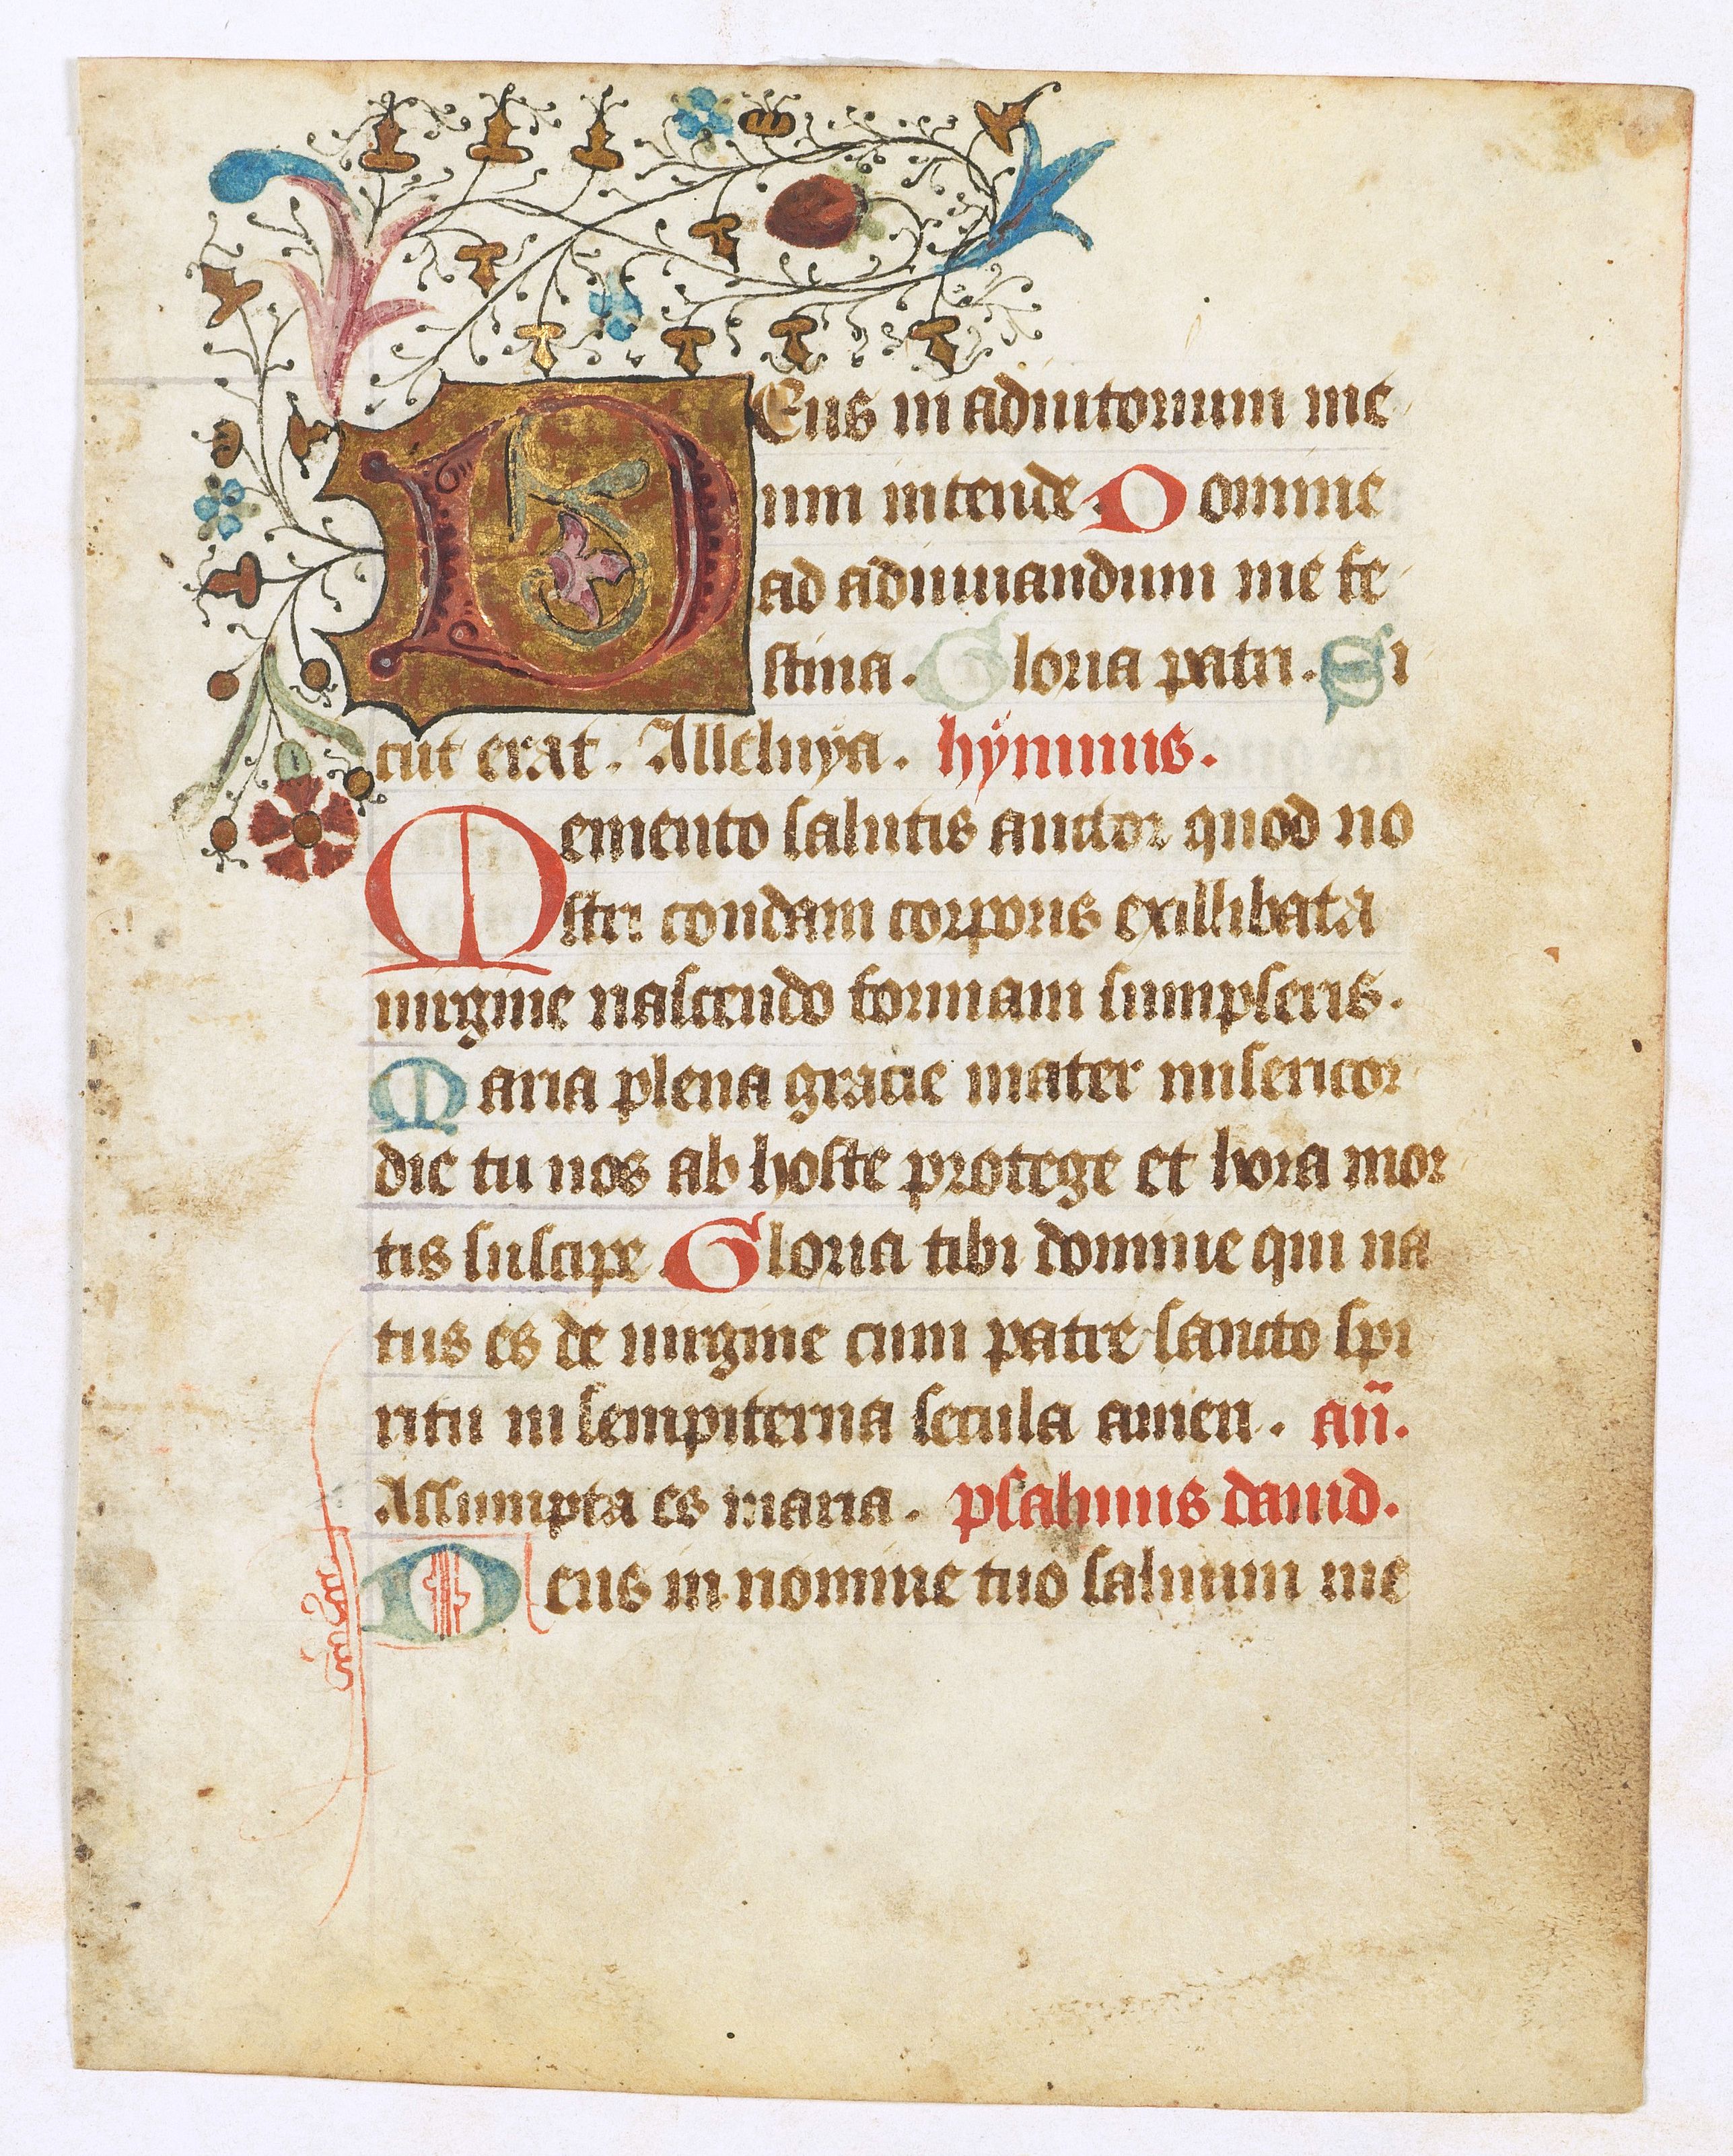 DEus in adiutorium me
um intende. Domine
ad adiuuandum me fe
stina. Gloria patri. Si
cut erat. Alleluÿa. hÿmnus.
Memento salutis auctor quod no
stri condam corporis exillibata
uirgine nascendo formam sumpseris.
Maria plena gracie mater misericor
die tu nos ab hoste protege et hora mor
tis suscipe. Gloria tibi domine qui na
tus es de uirgine cum patre sancto spi
ritu in sempiterna secula amen. an̄.
Assumpta es maria. psalmus dauid.
Deus in nomine tuo saluum me